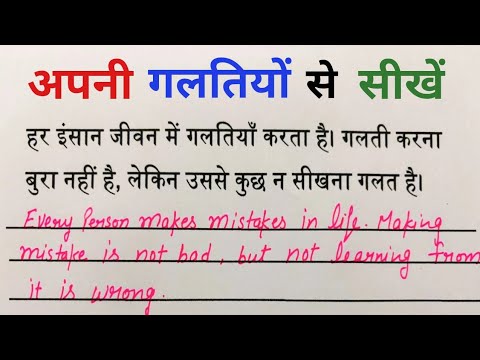 अपनी गलतियों से सीखें
हर इंसान जीवन में गलतियाँ करता है। गलती करना
बुरा नहीं है, लेकिन उससे कुछ न सीखना गलत है।
Every Person makes mistakes in life. Making
mistake is not bad, but not learning from
it is wrong.